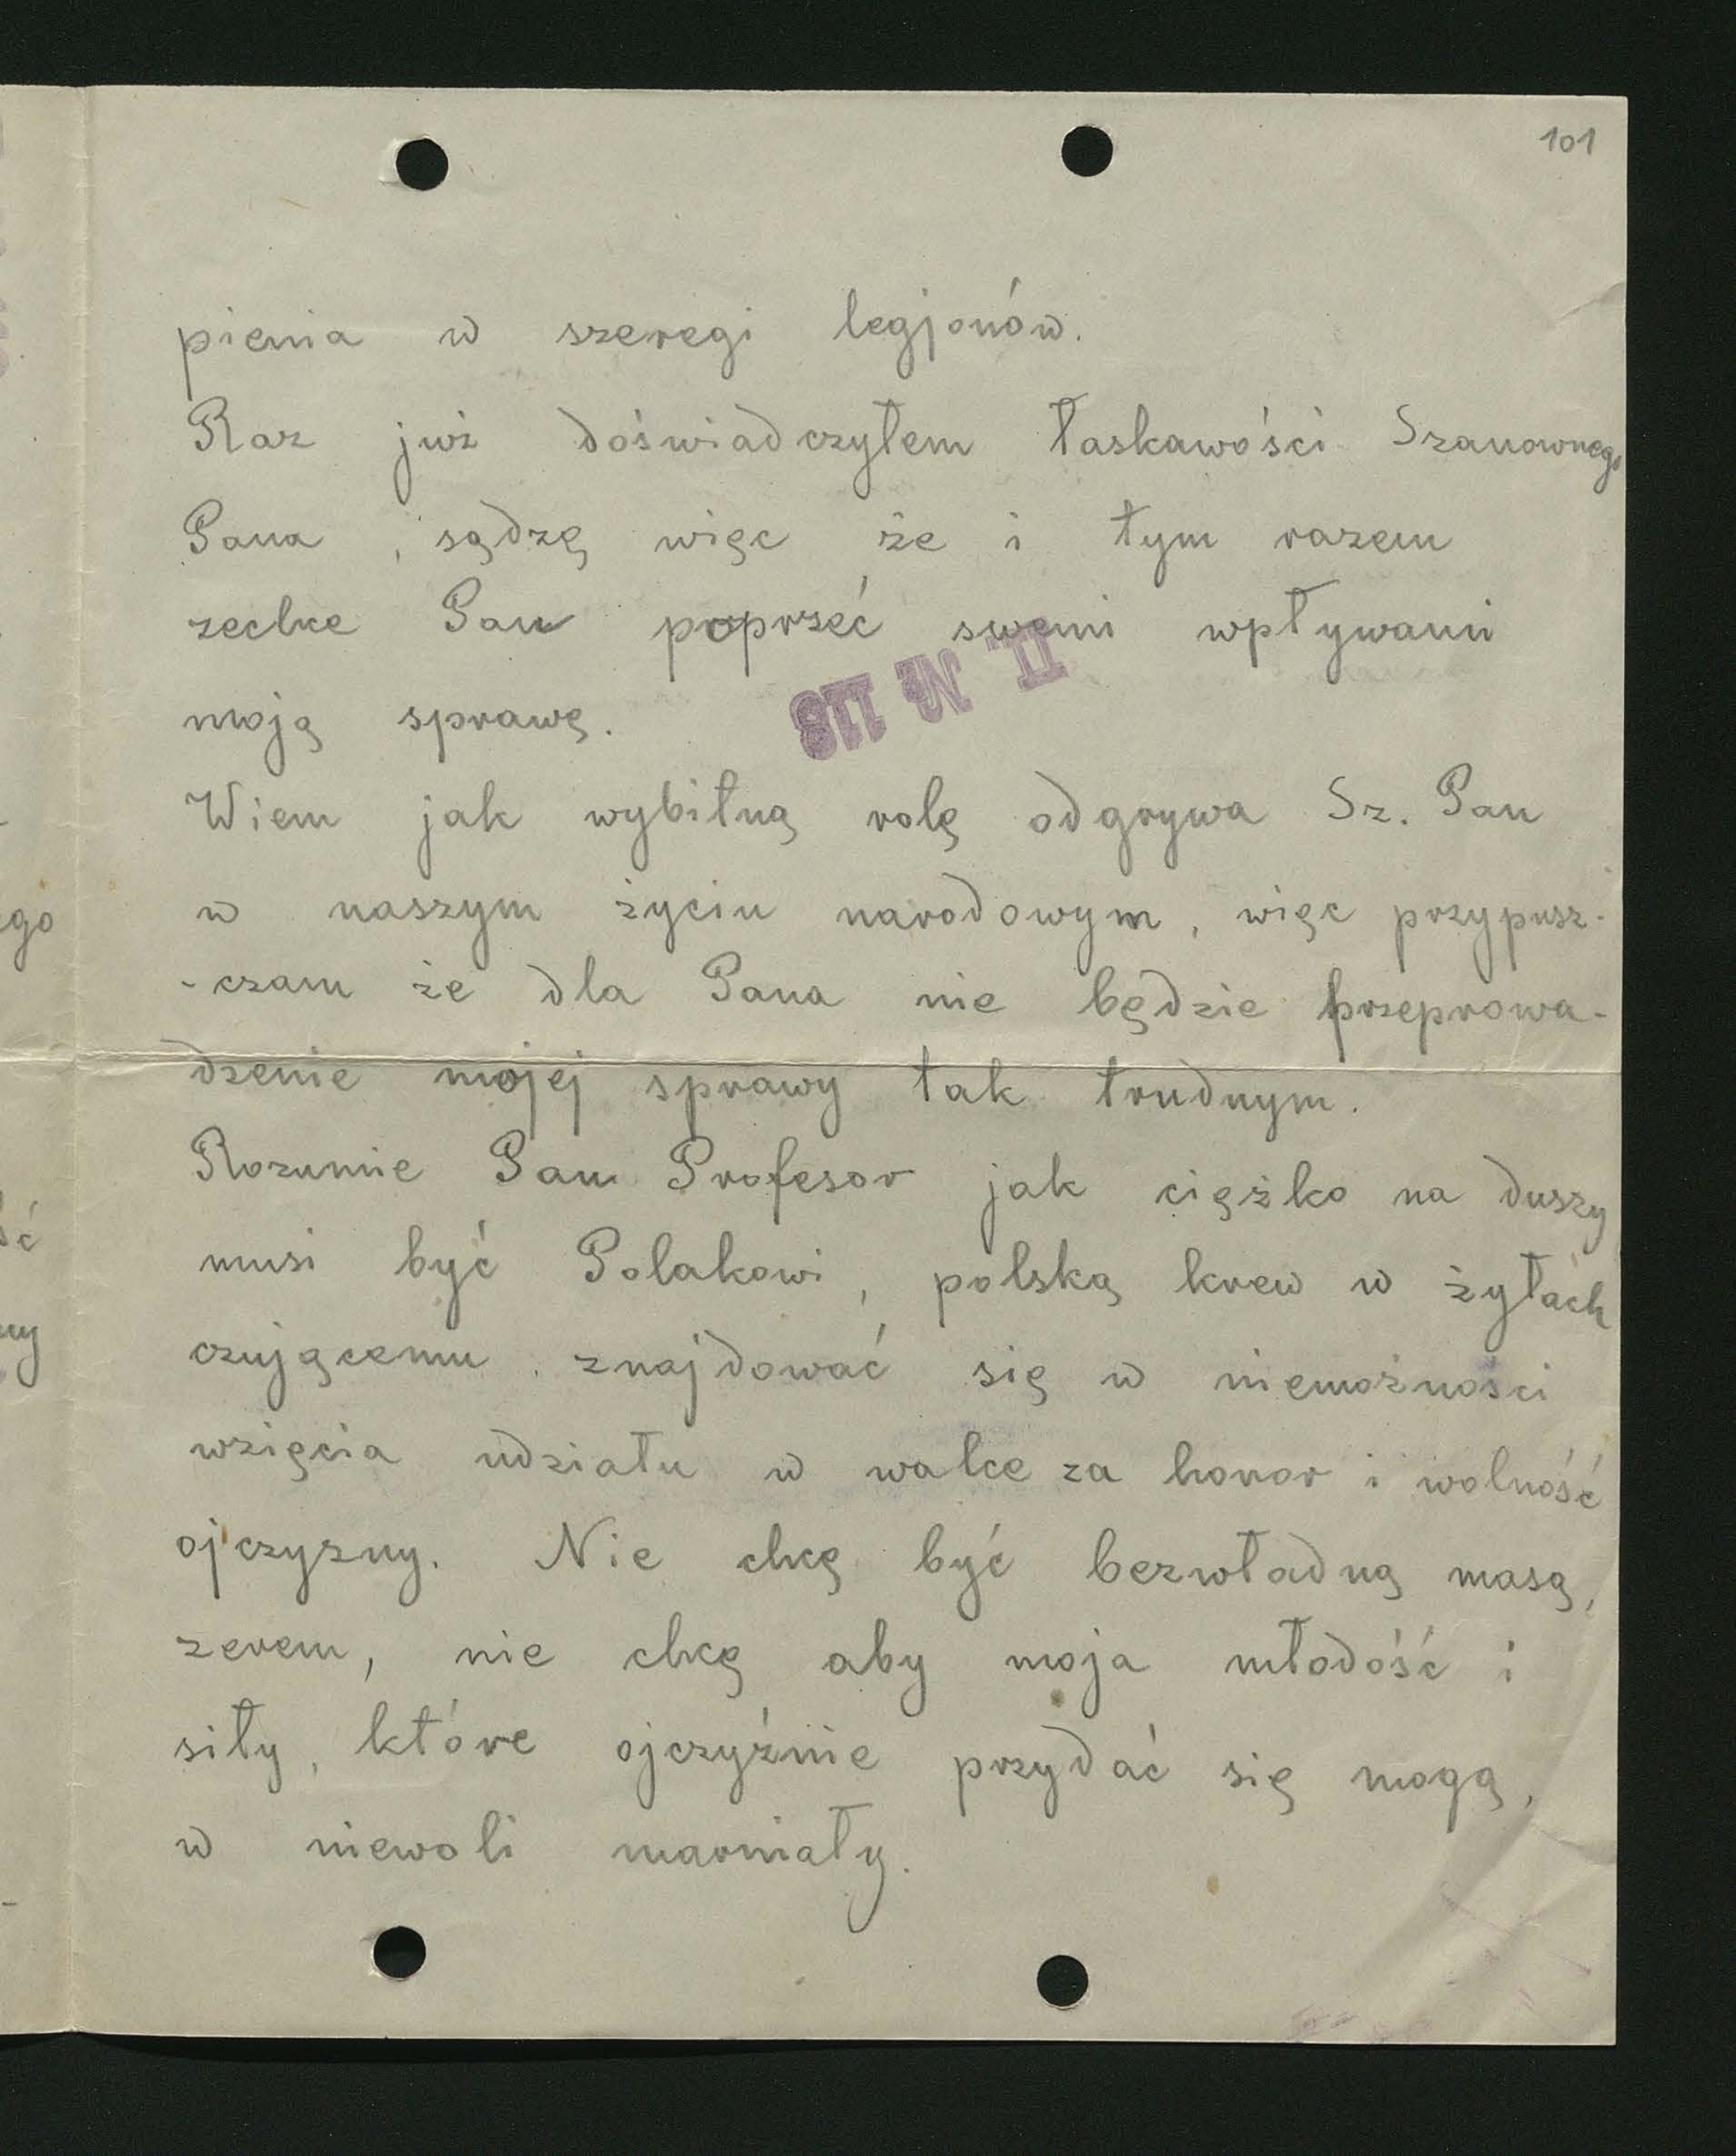 101
pienia w szeregi legjonów.
Raz już doświadczyłem łaskawości Szanownego
Pana, sądzę więc że i tym razem
zechce Pan poprzeć swemi wpływami
moją sprawę.
II. № 118
Wiem jak wybitną rolę odgrywa Sz. Pan
w naszym życiu narodowym, więc przypusz-
-czam że dla Pana nie będzie przeprowa-
dzenie mojej sprawy tak trudnym.
Rozumie Pan Profesor jak ciężko na duszy
musi być Polakowi, polską krew w żyłach
czującemu znajdować się w niemożności
wzięcia udziału w walce za honor i wolność
ojczyzny. Nie chcę być bezwładną masą,
zerem, nie chcę aby moja młodość i
siły, które ojczyźnie przydać się mogą,
w niewoli marniały.
ego
ść
ny